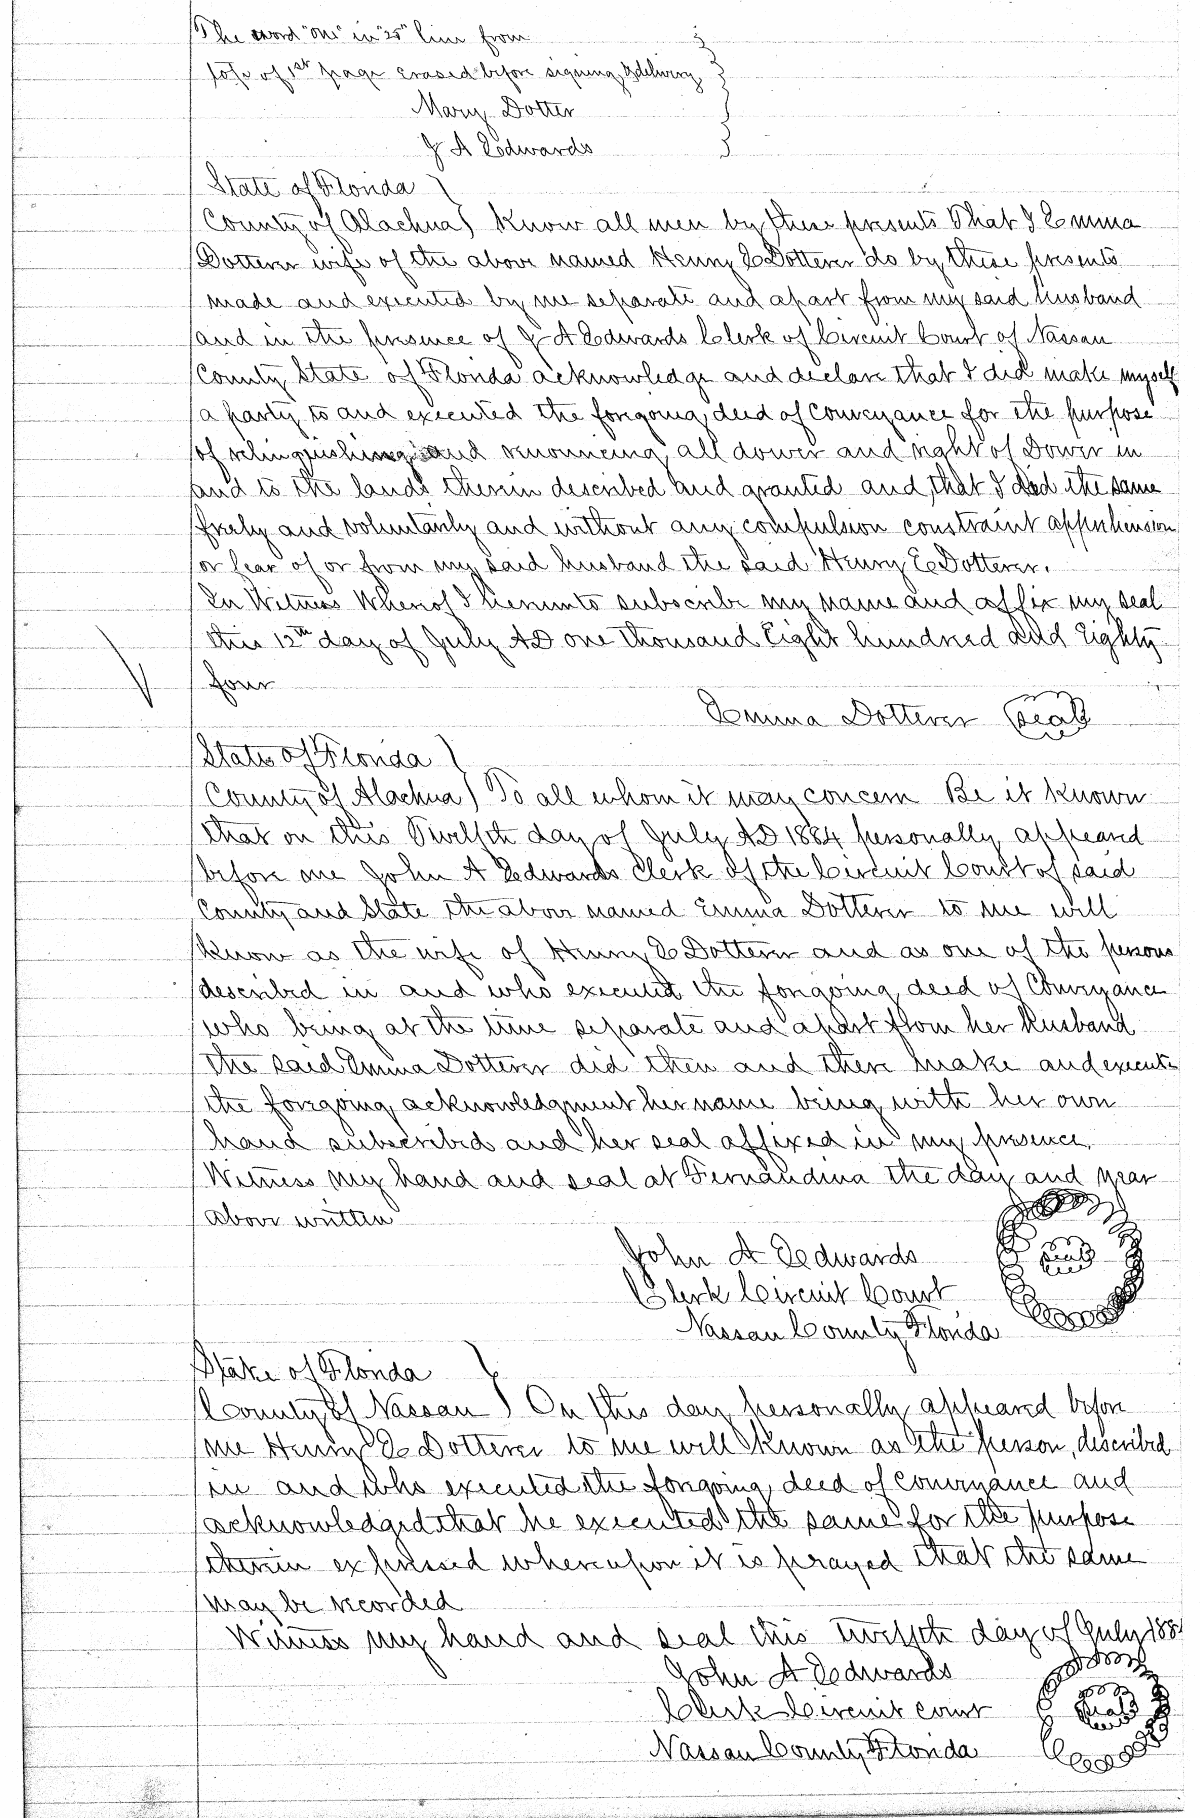 The word "one" in "25" line from
top of 1st page erased before signing & delivery
Mary Dotter
J A Edwards
State of Florida
County of Alachua Know all men by these presents That I Emma
Dotterer wife of the above named Henry E Dotterer do by these presents
made and executed by me separate and apart from my said husband
and in the presence of J A Edwards Clerk of Circuit Court of Nassau
County State of Florida acknowledge and declare that I did make myself
a party to and executed the forgoing deed of Conveyance for the purpose
of relinquishing and renouncing all dower and right of Dower in
and to the lands therein described and granted and that I did the same
freely and voluntarily and without any compulsion constraint apprehension
or fear of or from my said husband the said Henry E Dotterer.
In Witness Whereof I hereunto subscribe my name and affix my seal
this 12th day of July AD one thousand Eight hundred and Eighty
four
Emma Dotterer (seal)
State of Florida
County of Alachua To all whom it may concern Be it known
that on this Twelfth day of July AD 1884 personally appeared
before me John A Edwards Clerk of the Circuit Court of said
County and State the above named Emma Dotterer to me will
know as the wife of Henry E Dotterer and as one of the persons
described in and who executed the forgoing deed of Conveyance
who being at the time separate and apart from her husband
the said Emma Dotterer did then and there make and execute
the forgoing acknowledgment her name being with her own
hand subscribed and her seal affixed in my presence.
Witness my hand and seal at Fernandina the day and year
above written
John A Edwards
Clerk Circuit Court
Nassau County Florida
seal
State of Florida
County of Nassau On this day personally appeared before
me Henry E Dotterer to me will known as the person described
in and who executed the forgoing deed of Conveyance and
acknowledged that he executed the same for the purpose
therein expressed whereupon it is prayed that the same
may be recorded
Witness my hand and seal this twelfth day of July 188
John A Edwards
Clerk Circuit court
Nassau County Florida
seal